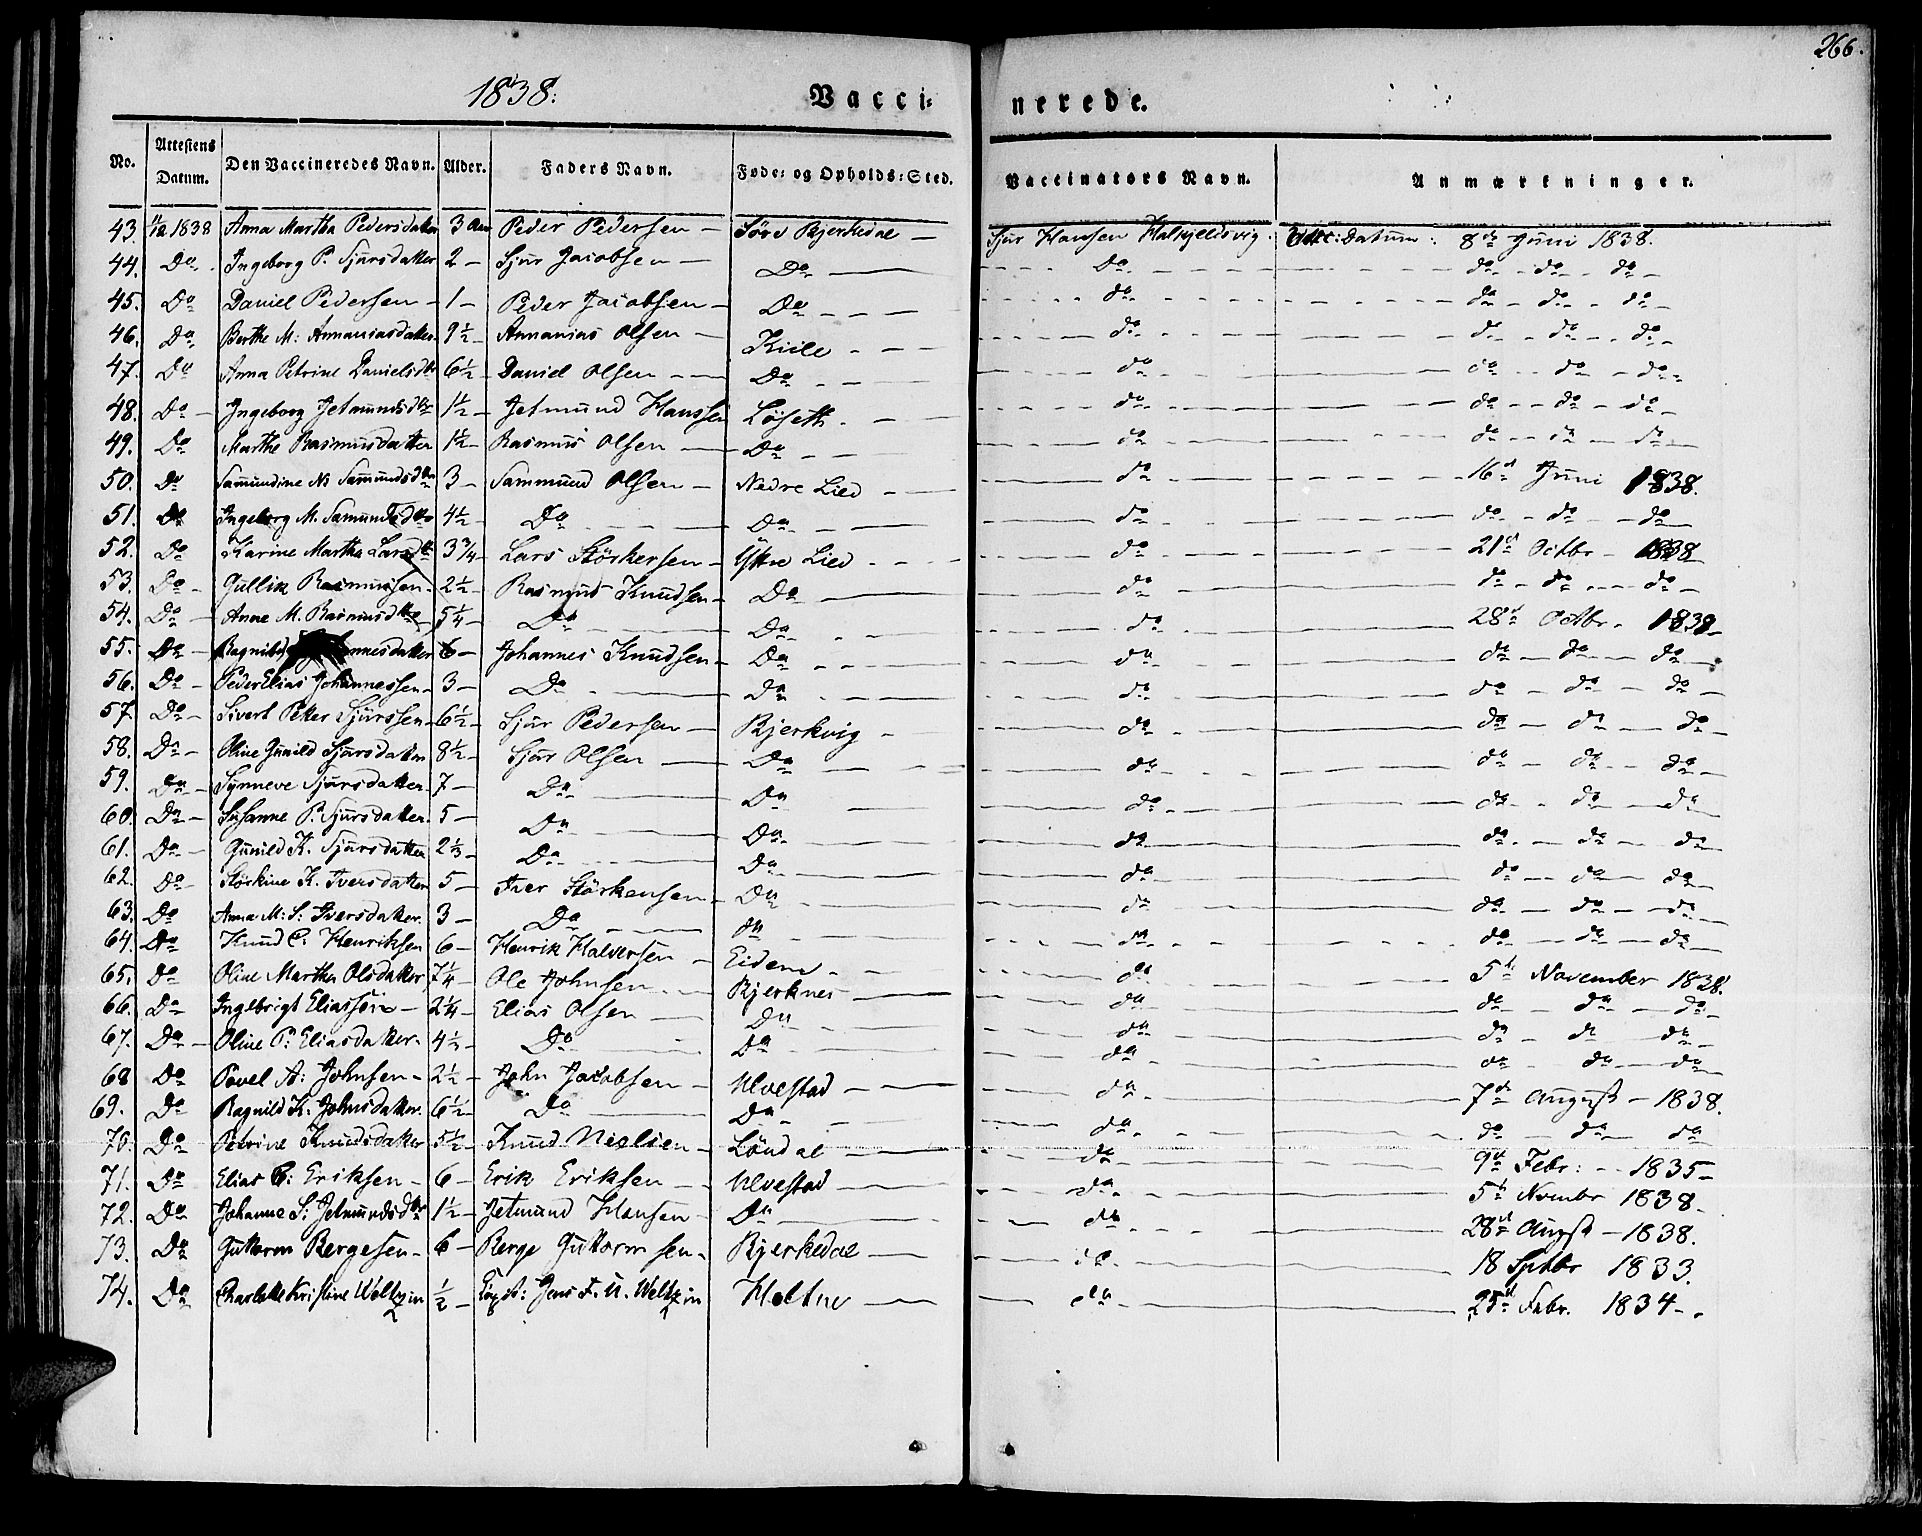 266.
1838.
Vacci=
nerede.
No. Attestens Datum. Den Vaccineredes Navn. Alder. Faders Navn. Føde= og Opholds=Sted. Vaccinators Navn. Anmærkninger.
43. 11/12 1838 Anna Martha Pedersdatter 3 Aar Peder Pedersen — Söre Bjerkedal — Sjur Hansen Datum: 8de Juni 1838.
44. Do. Ingeborg P. Sjursdatter 2 — Sjur Jacobsen — Do — Do do do do
45. Do Daniel Pedersen — 1 — Peder Jacobsen — Do do do do do
46. Do Berthe M: Annaniasdatter 9½ — Annanias Olsen — Kiile do do do do
47. Do Anna Petrine Danielsdtr 6½ — Daniel Olsen — Do do do do do
48. Do — Ingeborg Jetmundsdtr 1½ — Jetmund Hanssen Löseth. do do do do
49. Do Marthe Rasmusdatter 1½ — Rasmus Olsen — Do do do do do
50. Do Samundine N: Samundsdtr 3 — Sammund Olsen — Nedre Lied do 16de Juni 1838.
51. Do Ingeborg M. Samundsdtr 4½ — Do Do do do do do
52. Do Karine Martha Larsdtr 3¾ — Lars Störkersen — Ystre Lied do 21de Octbr — 1838
53. Do — Gullik Rasmussen — 2½ — Rasmus Knudsen — Do do do do do
54. Do — Anne M. Rasmusdtr 5¼ — Do Do do 28de Octbr. 1838 —
55. Do — 6 — Johannes Knudsen — Do do do do do
56. Do — Peder Elias Johannessen — 3 — Do Do do do do do
57. Do — Sivert Petter Sjurssen — 6½ — Sjur Pedersen — Bjerkvig do do do do
58. Do — Oline Gunild Sjursdatter 8½ — Sjur Olsen — Do do do do do
59. Do — Synneve Sjursdatter 7 — Do Do do do do do
60. Do — Susanne P. Sjursdatter 5 — Do Do do do do do
61. Do — Gunild K. Sjursdatter 2⅓ — Do Do do do do do
62. Do — Störkine K. Iversdatter 5 — Iver Störkersen — Do do do do do
63. Do Anna M: S: Iversdatter. 3 — Do do do do do do
64. Do Knud C. Henriksen 6 — Henrik Halversen — Eidem do do do do
65. Do Oline Martha Olsdatter 7¼ — Ole Johnsen Bjerknes — do 5te November 1838.
66. Do Ingebrigt Eliassön — 2¼ — Elias Olsen — Do do do do do
67. Do — Oline P. Eliasdatter. 4½ — Do Do do do do do
68 Do Povel A: Johnsen — 2½ — John Jacobsen — Ulvestad — do do do do
69. Do Ragnild K. Johnsdatter. 6½ — Do Do do 7de August — 1838.
70. Do Petrine Knudsdatter 5½ — Knud Nielsen — Löndal do do do do
71. Do Elias Eriksen — 6 — Erik Eriksen — Ulvestad — do 9de Febr: — 1835 —
72. Do Johanne S: Jetmundsdtr 1½ — Jetmund Hansen Do do 5te Novembr 1838.
73. Do Guttorm Bergesen — 6 — Berge Guttormsen — Bjerkedal — do 28de August — 1838.
18 Sptbr 1833.
74. Do Charlotte Kristine Weltzin ½ — Capt: Jens F. U. Weltzin Holtne — do 25de Febr. 1834 —